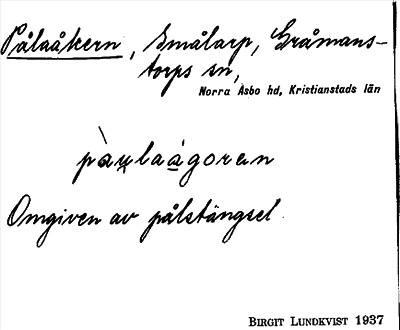 Pålaåkern, Smålarp, Gråmans-
torps sn,
Norra Åsbo hd, Kristianstads län
pàu̯laágoren
Omgiven av pålstängsel.
BIRGIT LUNDKVIST 1937